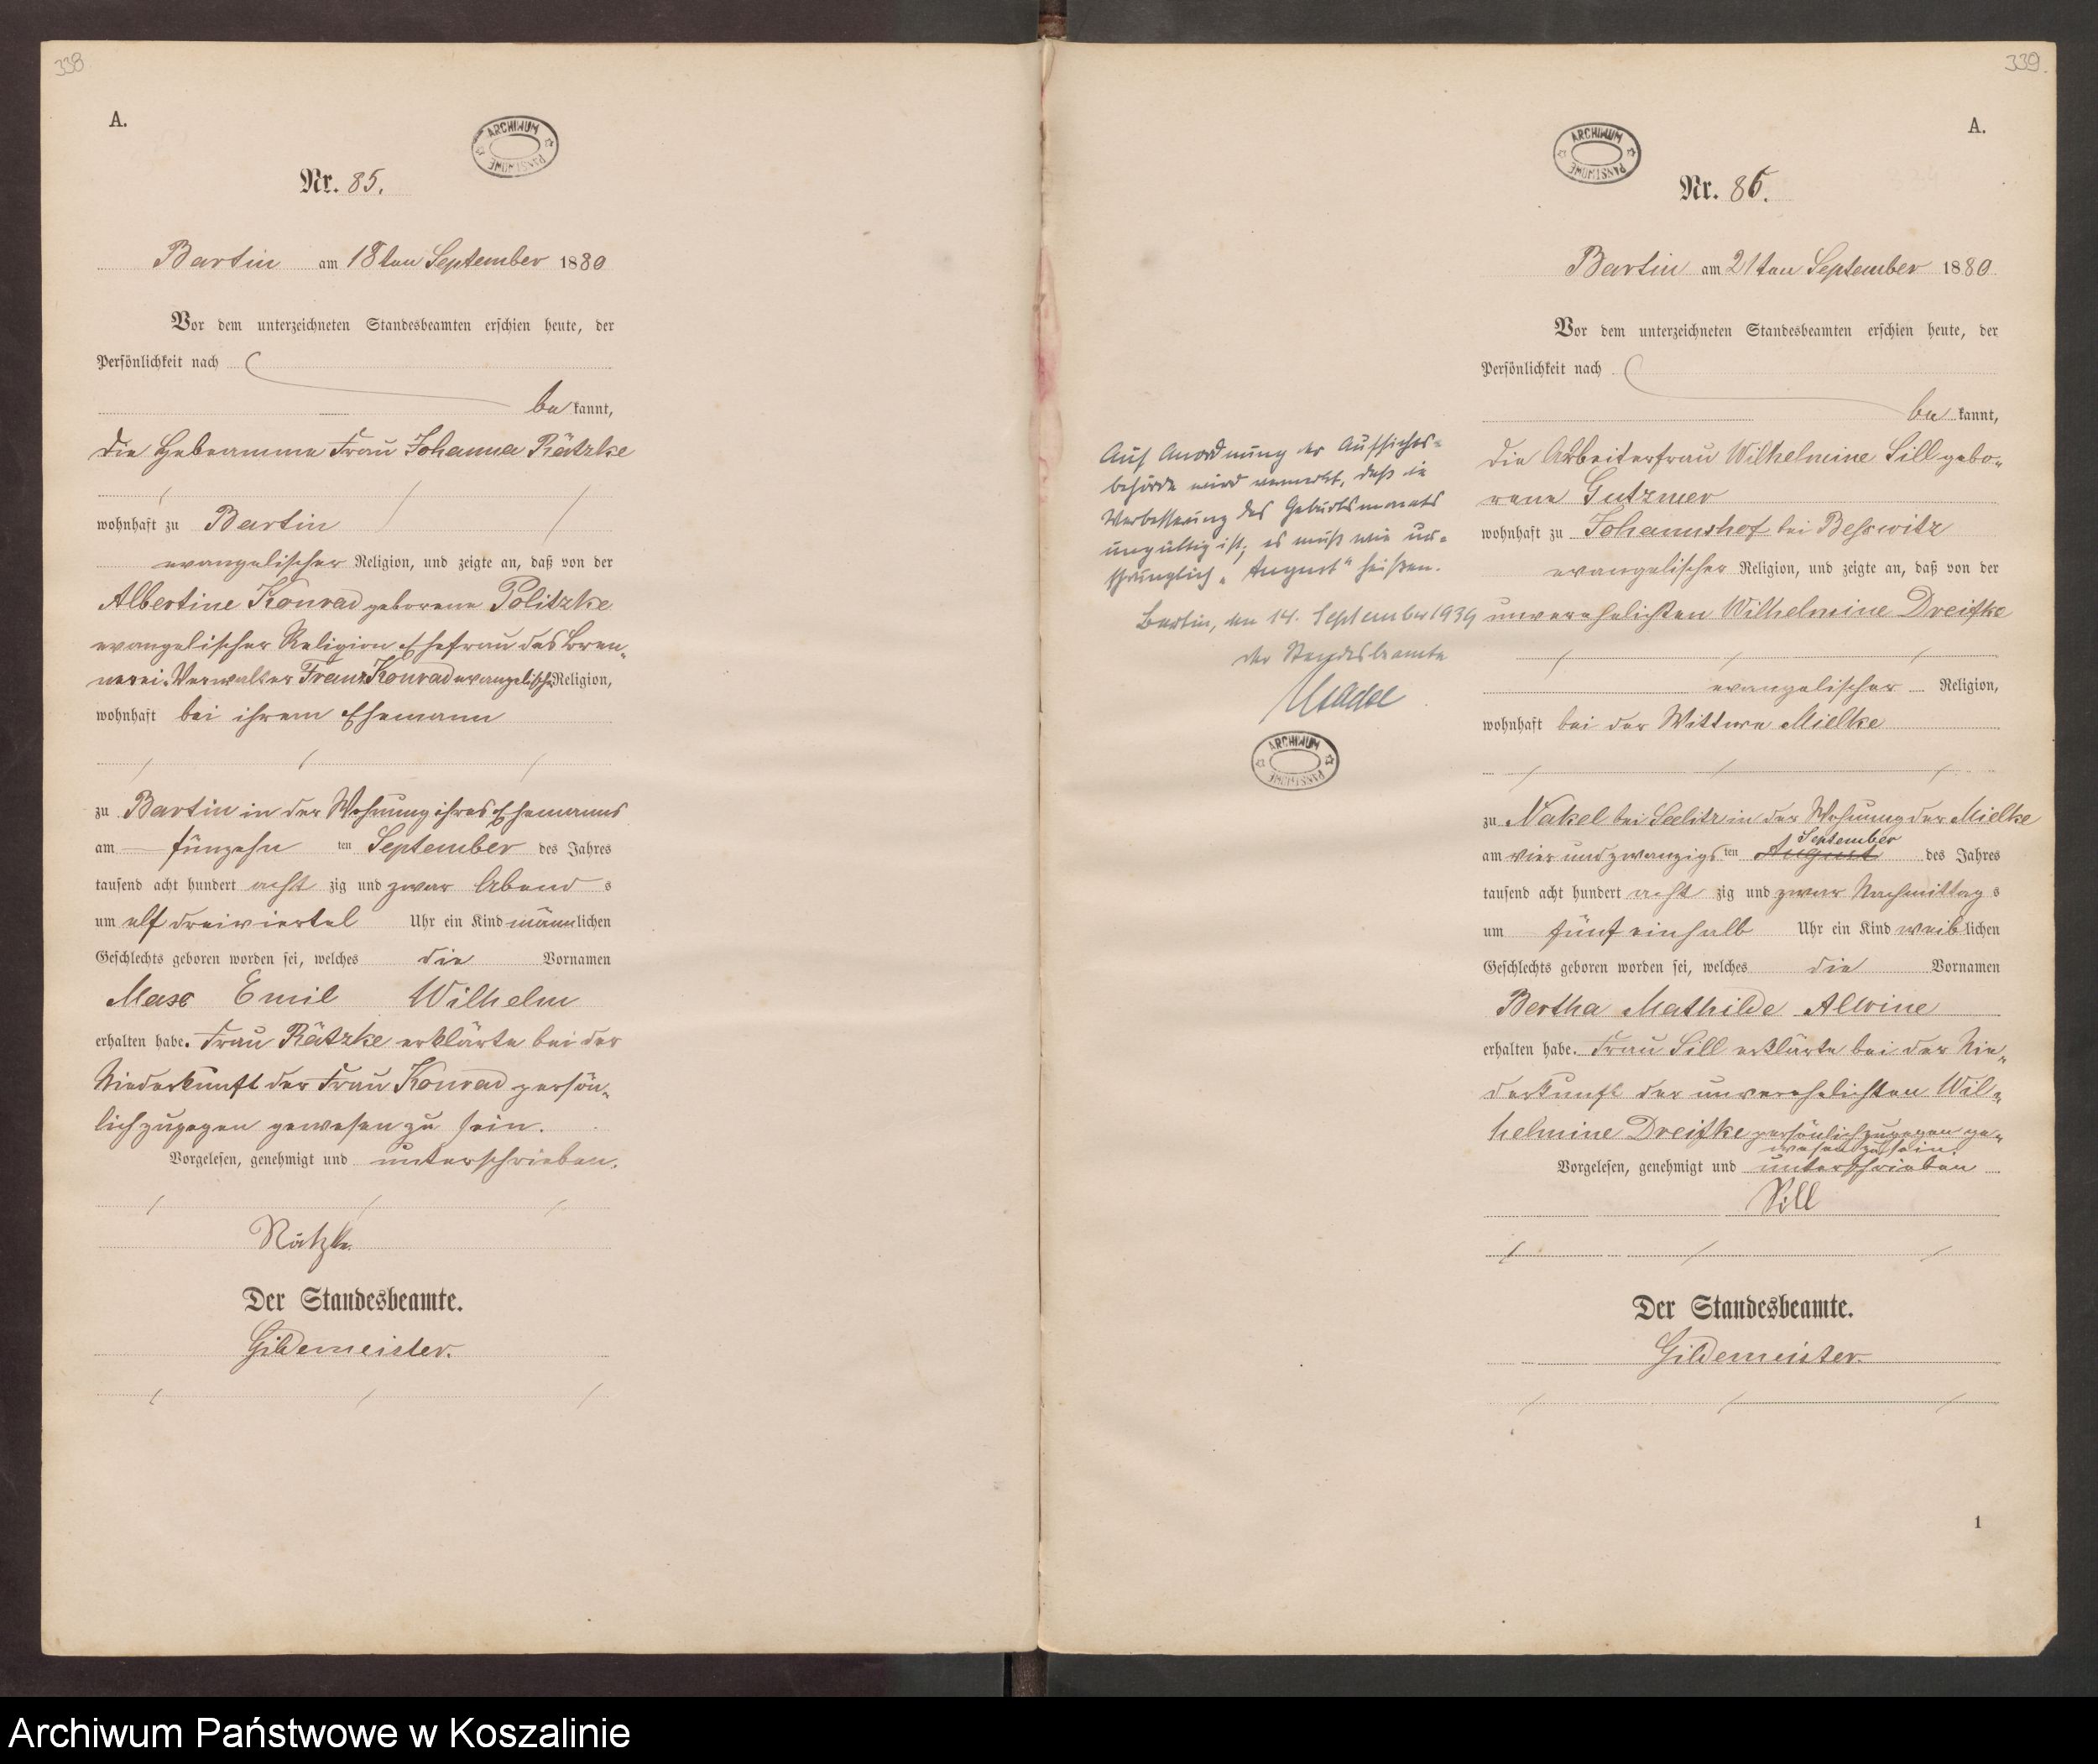 338
A.
ARCHIWUM PAŃSTWOWE
Nr. 85.
Bartin am 18ten September 1880
Vor dem unterzeichneten Standesbeamten erschien heute, der
Persönlichkeit nach
be kannt,
die Hebeamme Frau Johanna Rätzke
wohnhaft zu Bartin
evangelischer Religion, und zeigte an, daß von der
Albertine Konrad geborene Politzke
evangelischer Religion Ehefrau des Bren-
nerei-Verwalter Franz Konrad evangelisch. Religion,
wohnhaft bei ihrem Ehemann
zu Bartin in der Wohnung ihres Ehemanns
am fünzehn ten September des Jahres
tausend acht hundert acht zig und zwar Abend s
um elf dreiviertel Uhr ein Kind männlichen
Geschlechts geboren worden sei, welches die Vornamen
Max Emil Wilhelm
erhalten habe. Frau Rätzke erklärte bei der
Niederkunft der Frau Konrad persön-
lich zugegen gewesen zu sein.
Vorgelesen, genehmigt und unterschrieben.
Rätzke
Der Standesbeamte.
Gildemeister.
339.
A.
ARCHIWUM PAŃSTWOWE
Nr. 86.
Bartin am 21ten September 1880
Vor dem unterzeichneten Standesbeamten erschien heute, der
Persönlichkeit nach
be kannt,
die Arbeiterfrau Wilhelmine Sill gebo-
rene Gutzmer
wohnhaft zu Johannshof bei Besswitz
evangelischer Religion, und zeigte an, daß von der
unverehelichten Wilhelmine Dreifke
evangelischer Religion,
wohnhaft bei der Wittwe Mielke
zu Nakel bei Seelitz in der Wohnung der Mielke
September
am vier und zwanzigs ten August des Jahres
tausend acht hundert acht zig und zwar Nachmittag s
um fünf einhalb Uhr ein Kind weiblichen
Geschlechts geboren worden sei, welches die Vornamen
Bertha Mathilde Alwine
erhalten habe. Frau Sill erklärte bei der Nie-
derkunft der unverehelichten Wil-
helmine Dreifke persönlich zugegen ge-
wesen zu sein.
Vorgelesen, genehmigt und unterschrieben
Sill
Der Standesbeamte.
Gildemeister.
1
Auf Anordnung der Aufsichts-
behörde wird vermerkt, daß die
Verbesserung des Geburtsmonats
ungültig ist; es muß wie ur-
sprünglich „August" heißen.
Bartin, den 14. September 1939
der Standesbeamte
ARCHIWUM PAŃSTWOWE
Archiwum Państwowe w Koszalinie